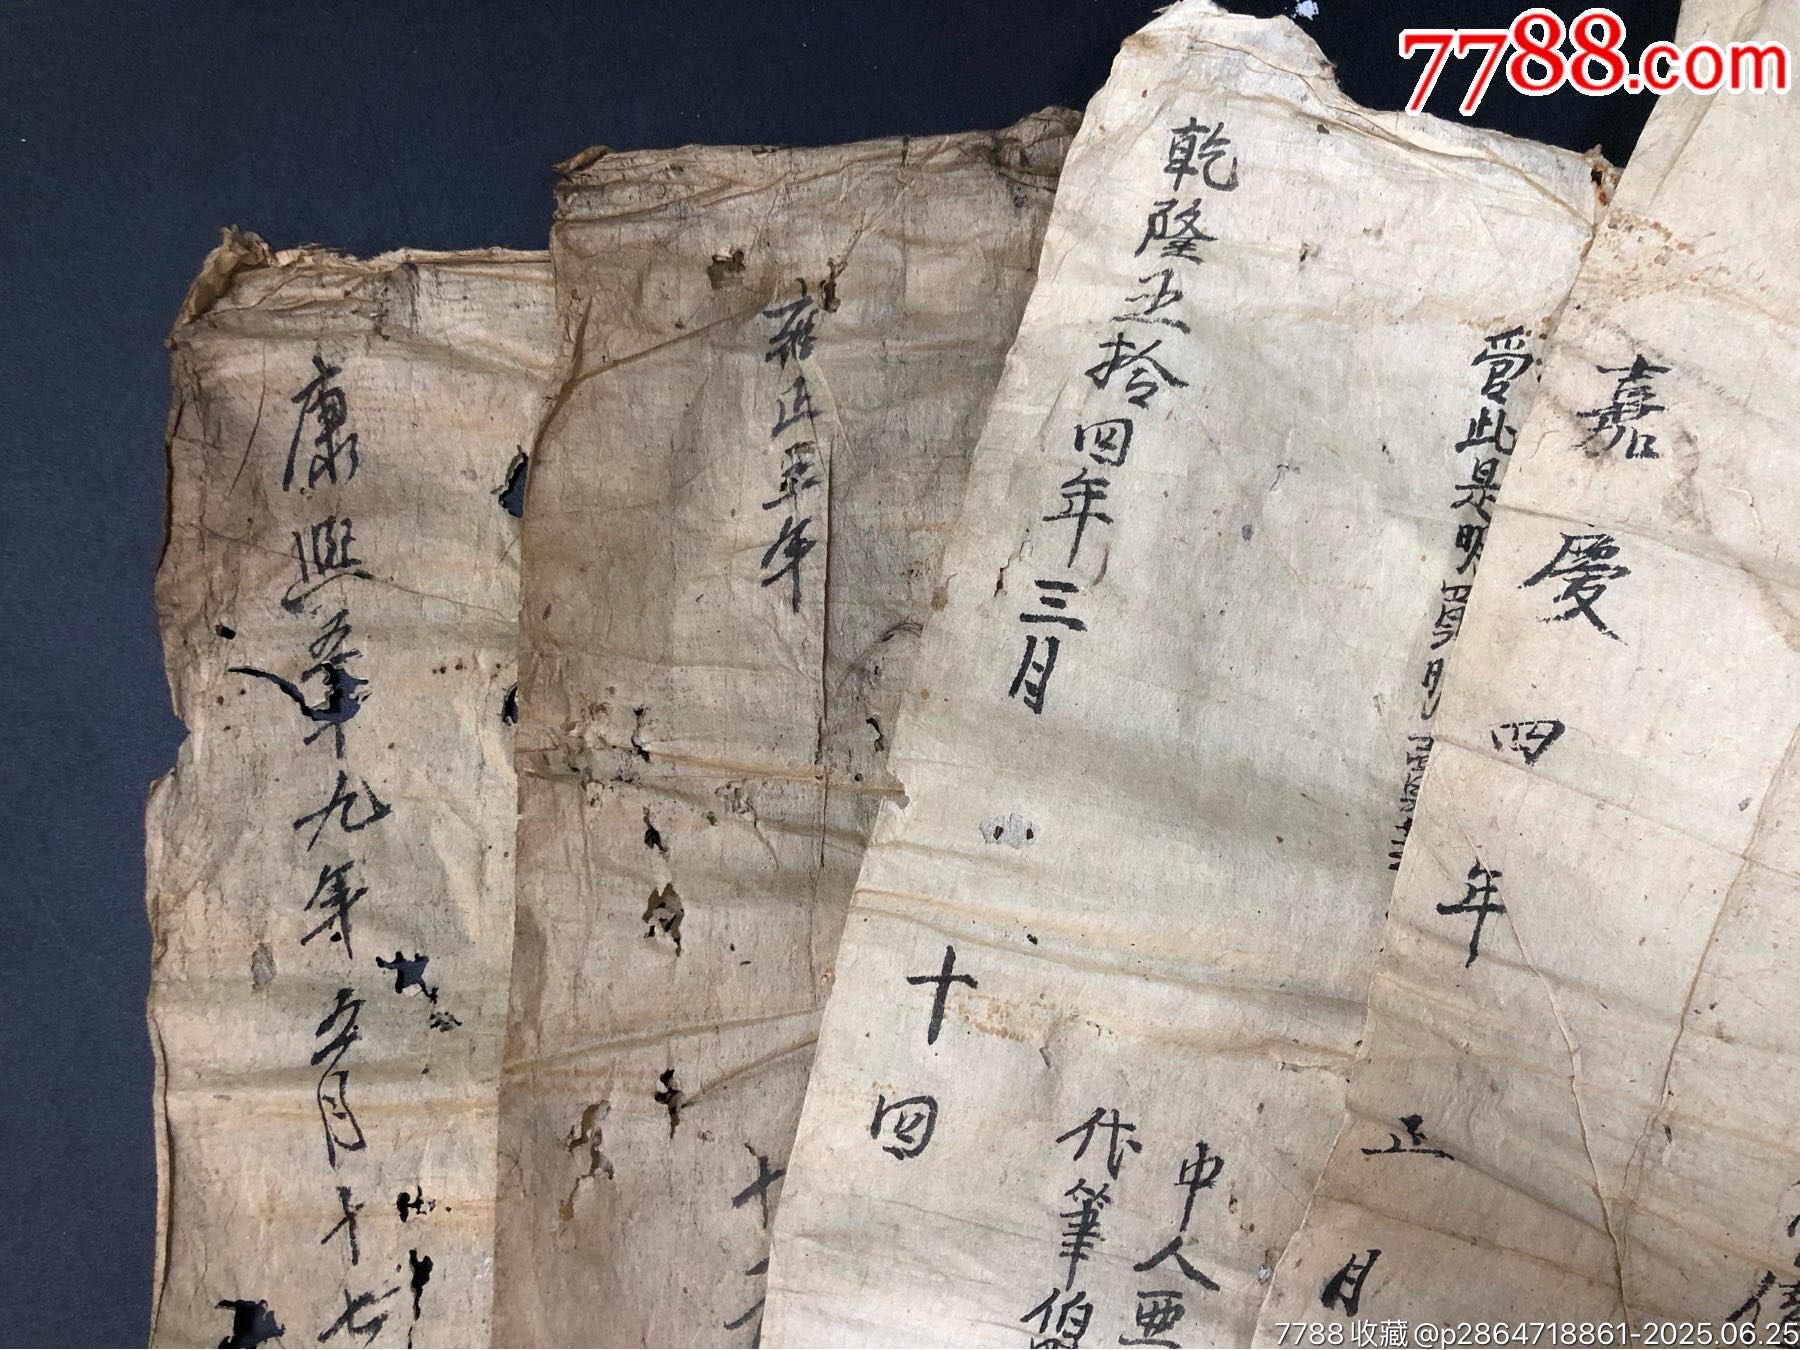 7788.com
嘉慶四年正月
管此是明
乾隆五拾四年三月
十四
中人亜
代筆伯
雍正五年
康熙五十九年五月十七
7788收藏@p2864718861-2025.06.25